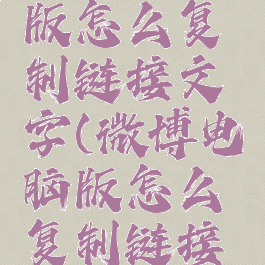 版怎么复
制链接文
字(微博电
脑版怎么
复制链接